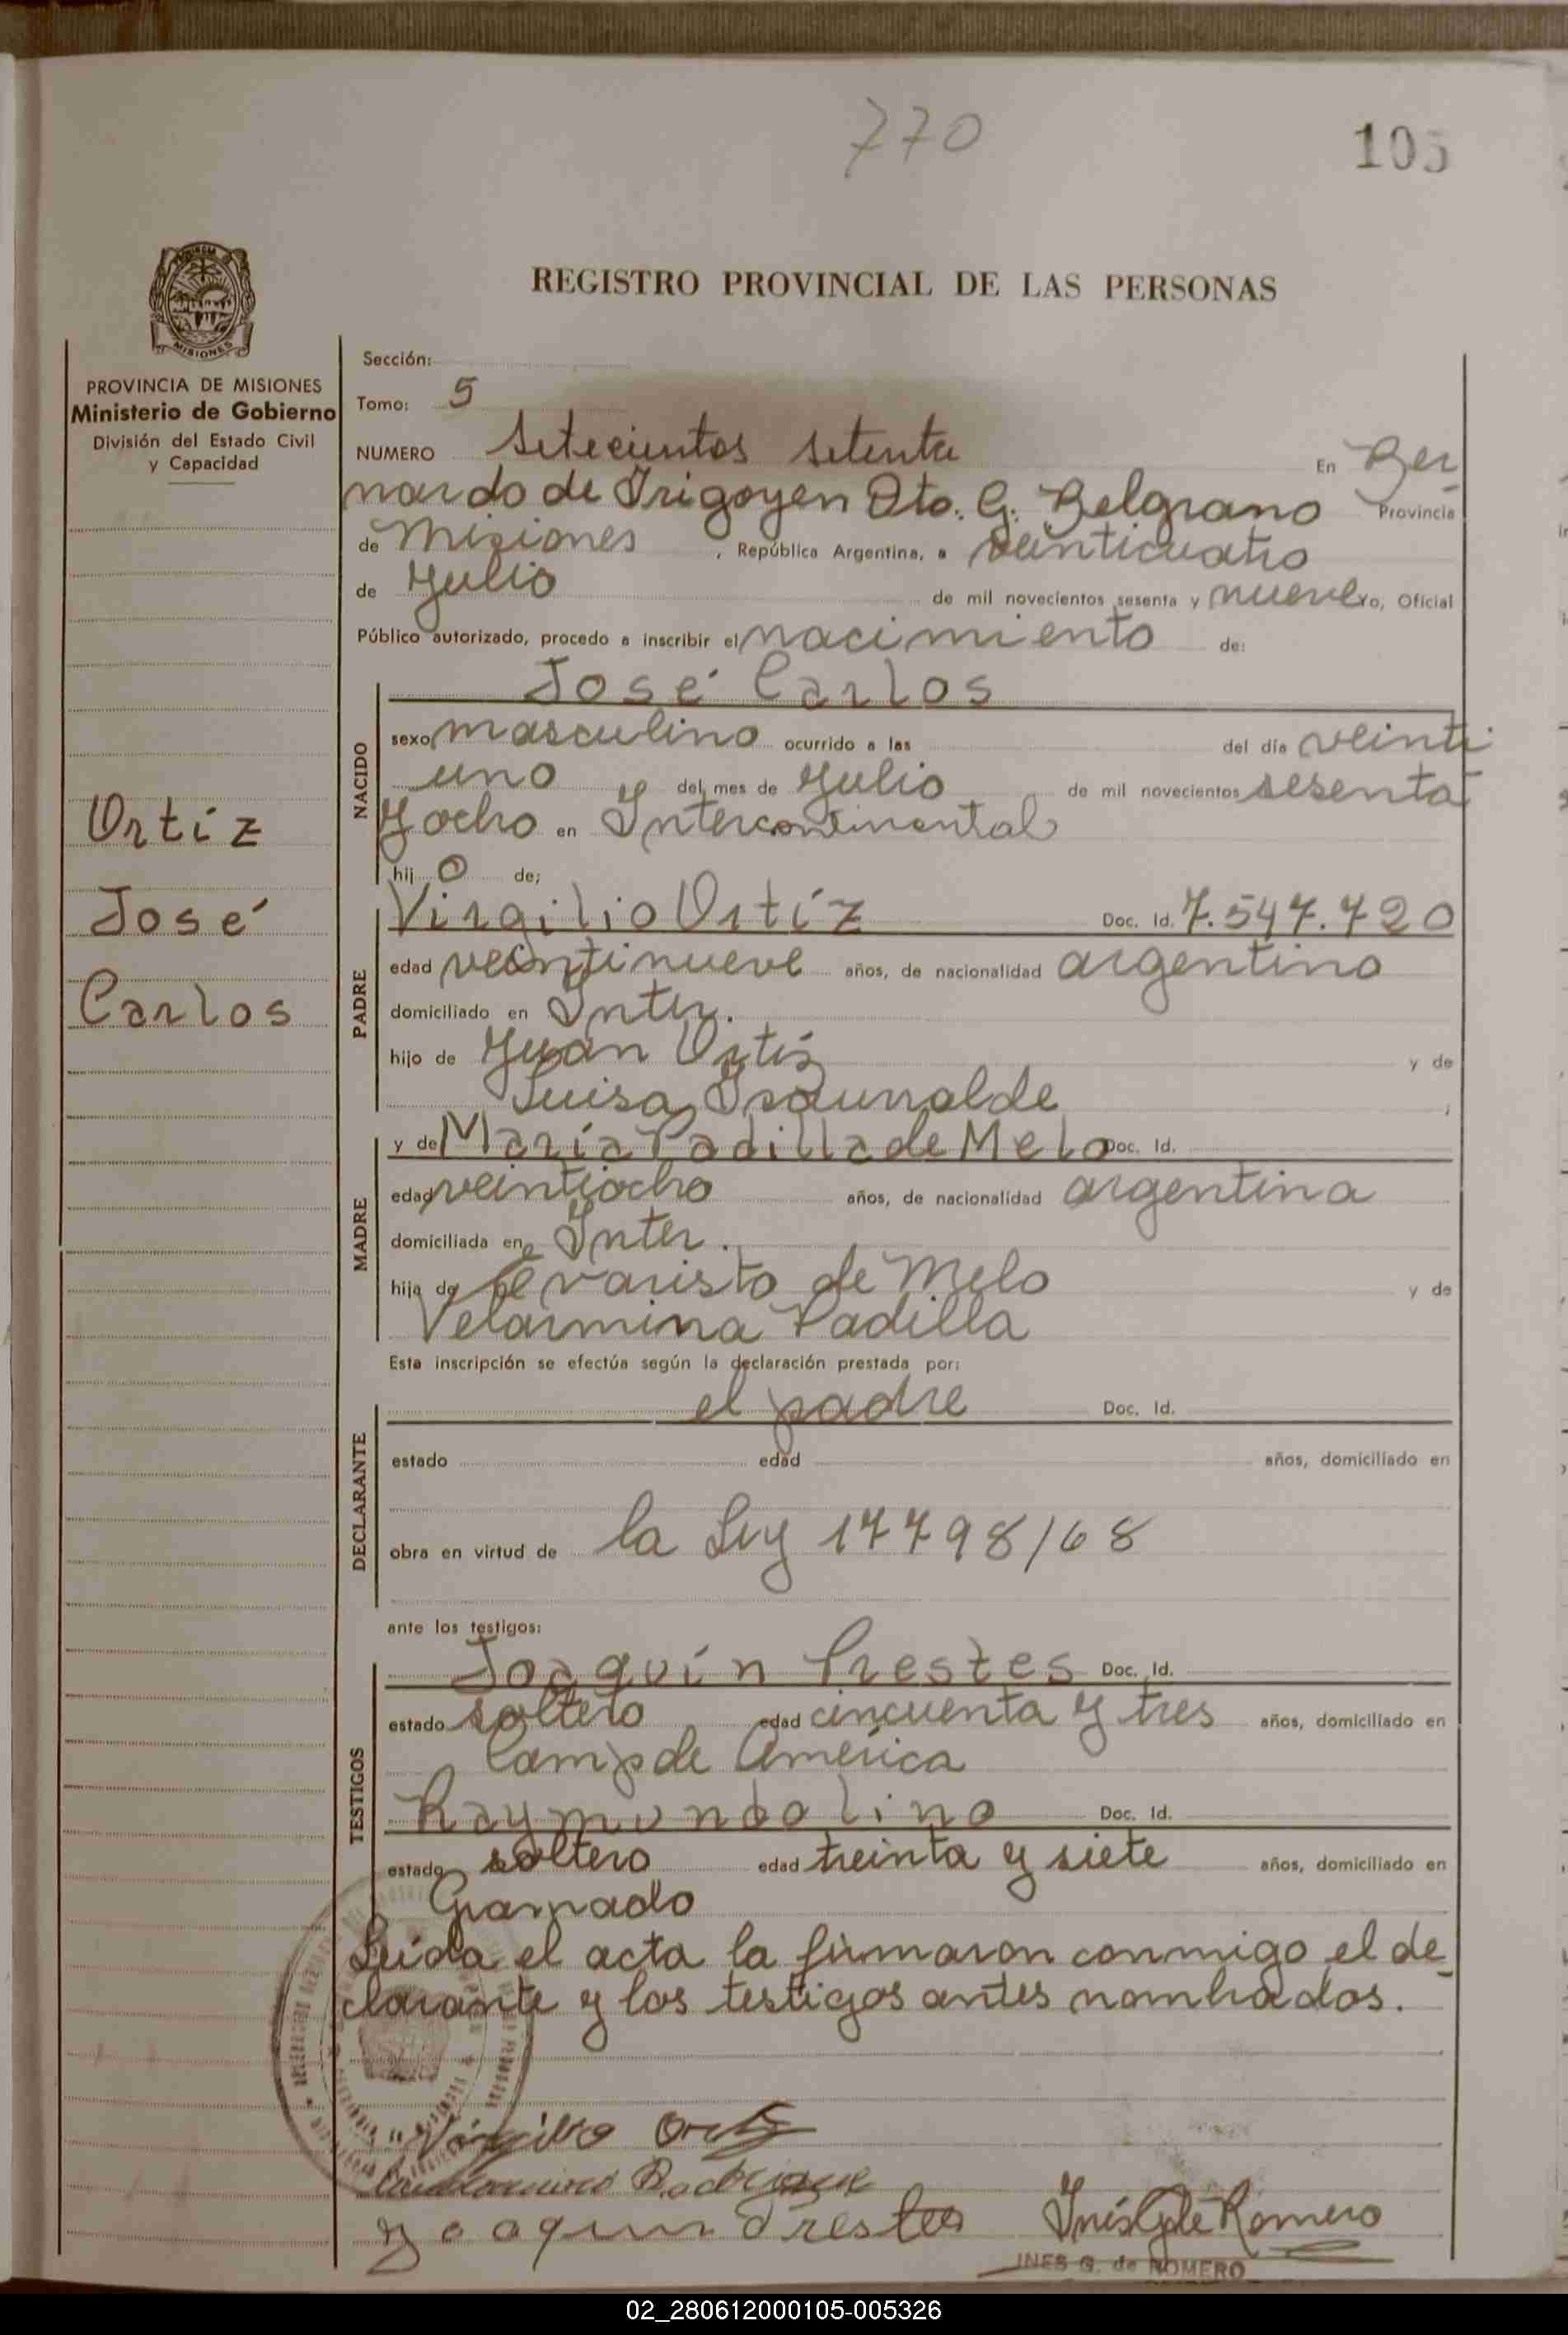 770
105
REGISTRO PROVINCIAL DE LAS PERSONAS
MISIONES
PROVINCIA DE MISIONES
Ministerio de Gobierno
División del Estado Civil
y Capacidad
Ortíz
José
Carlos
Sección:
Tomo: 5
NUMERO Setecientos setenta En Ber
nardo de Irigoyen Dto. G. Belgrano Provincia
de Misiones, República Argentina, a veinticuatro
de Julio de mil novecientos sesenta y nueve yo, Oficial
Público autorizado, procedo a inscribir el nacimiento de:
José Carlos
NACIDO
sexo masculino ocurrido a las del día veinti
uno del mes de Julio de mil novecientos sesenta
y ocho en Intercontinental
hijo de;
PADRE
Virgilio Ortíz Doc. Id. 7.547.720
edad veintinueve años, de nacionalidad argentino
domiciliado en Inter.
hijo de Juan Ortis y de
Luisa ;
MADRE
y de María Padilla de Melo Doc. Id.
edad veintiocho años, de nacionalidad argentina
domiciliada en Inter.
hija de Evaristo de Melo y de
Velarmina Padilla
Esta inscripción se efectúa según la declaración prestada por:
DECLARANTE
el padre Doc. Id.
estado edad años, domiciliado en
obra en virtud de la Ley 17798/68
ante los testigos:
TESTIGOS
Joaquín Prestes Doc. Id.
estado soltero edad cincuenta y tres años, domiciliado en
Comp de América
Raymundo Lino Doc. Id.
estado soltero edad treinta y siete años, domiciliado en
Gramado
Leida el acta la firmaron conmigo el de
clarante y los testigos antes nombrados.
Virgilio Ortiz
Joaquin Prestes
Inés G de Romero
INES G. de ROMERO
02_280612000105-005326